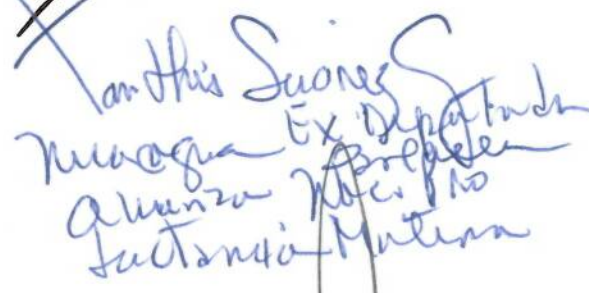 Ianthis Suárez
Nicaragua Ex Diputada
Alianza Nac. Pro
Lactancia Materna